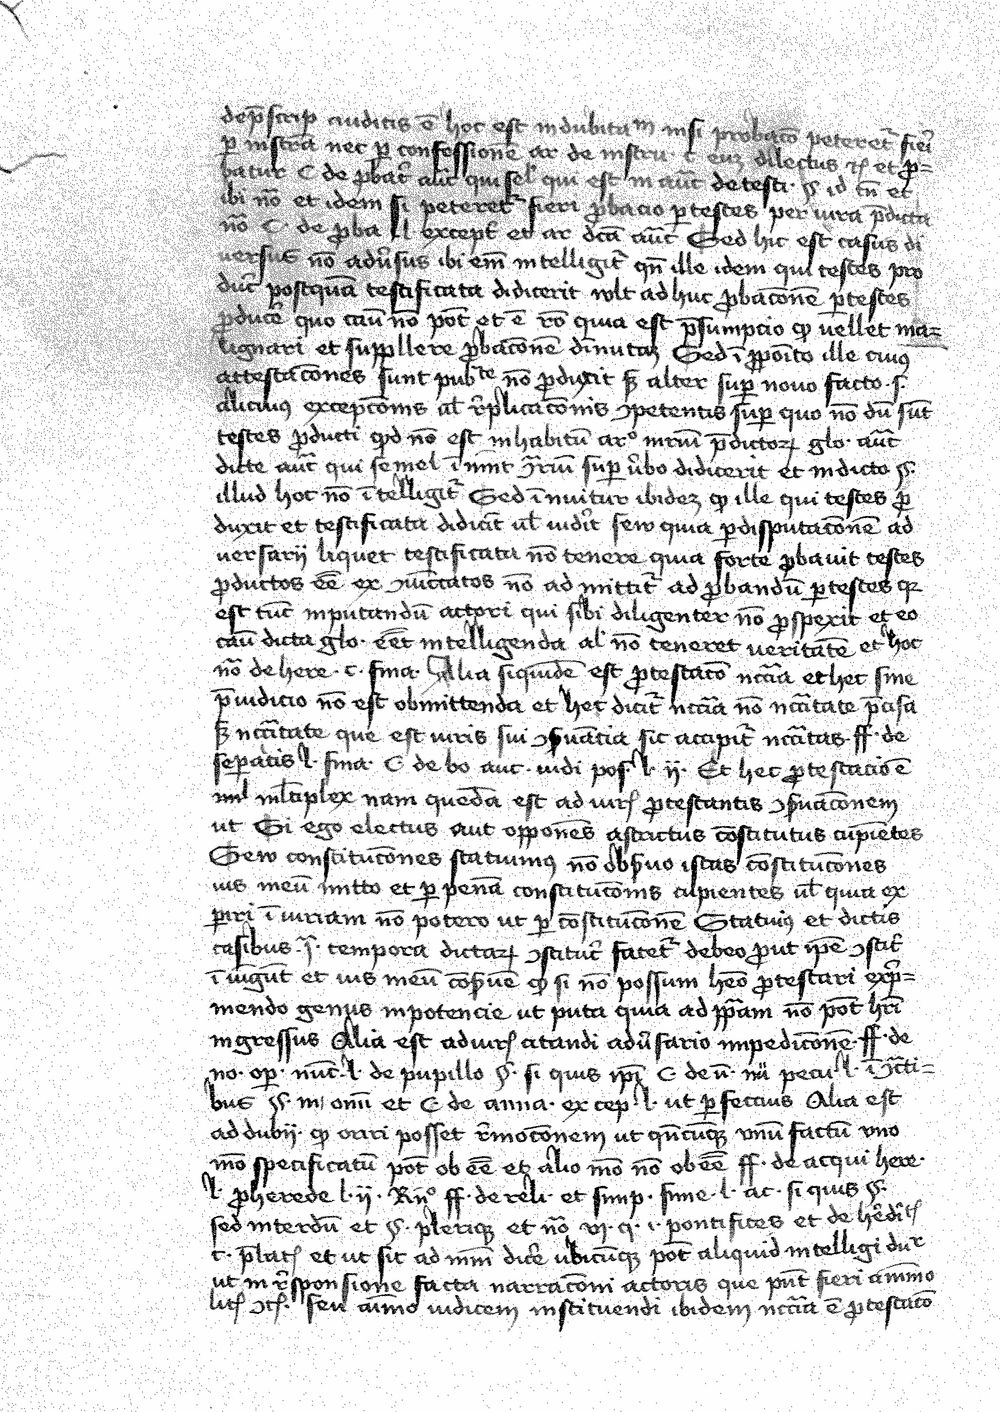 dep̄scrip̄ ciuditis ē hoc est indubitaᵐ nisi probac̄o peteret᷑ fieri
ꝑ instr̄a nec ꝑ confessionē ar de instru· c̄ cuꝫ dilectus et ꝓ-
batur C de ꝓbat᷑ aut̄ qui sel̄ qui est in aut̄ de testi· § id tn̄ et
ibi nō et idem si peteret᷑ fieri ꝓbacio ꝑ testes per iura p̄dicta
nō C de ꝓba l· except̄ et ar dc̄a aut̄ Sed hic est casus di
uersus nō adūsus ibi em̄ intelligit᷑ qn̄ ille idem qui testes pro
duc̄ postquā testificata didicerit wlt ad huc ꝓbac̄onē ꝑ testes
ꝓducē quo cau nō pōt et ē rō quia est p̄sumpcio ꝙ uellet ma=
lignari et suppllere ꝓbac̄onē dīnutaꝫ Sed ī ꝓpōito ille cuiꝰ
attestac̄ones sunt pubᵗᵉ nō ꝓduxit sꝫ alter suꝑ nouo facto ·s·
alicuiꝰ excepc̄onis ul̄ r̄plicac̄onis ꝯpetentis suꝑ quo nō dū sūt
testes ꝓducti qd̄ nō est inhabitū arᵒ iuriū p̄dictoꝝ glo· aut̄
dicte aut̄ qui semel ī uint ꝯr̄iū suꝑ ūbo didicerit et in dicto §
illud hoc nō ītelligit᷑ Sed īnuitur ibideꝫ ꝙ ille qui testes ꝓ
duxit et testificata didicit ul̄ uidit seu quia ꝑ disputac̄onē ad
uersarij liquet testificata nō tenere quia forte ꝓbauit testes
ꝓductos eē̄ ex ꝯuīcatos nō admittit᷑ ad ꝓbandū ꝑ testes qꝛ
est tūc inputandū actori qui sibi diligenter nō ꝓspexit et eo
cau dicta glo· eēt intelligenda al̄ nō teneret ueritatē et hoc
nō de here· c· fina· Alia siquidē est ꝓtestac̄o nccīa et hec sine
p̄iudicio nō est obmittenda et hec dicit᷑ nccīa nō nccītate p̄cisa
sꝫ nccītate que est iuris sui ꝯẛuatīa sic accipit᷑ nccītas ff· de
seꝑatis l· fina· C de bo auc· iudi pos· l· ij· Et hec ꝓtestacio ē
ml̄tiplex nam quedā est ad iur̄ ꝓtestantis ꝯẛuac̄onem
ut Si ego electus aut oppones astrictus cōstitutus cupiētes
Seu constituc̄ones statuimꝰ nō obẛuo istas cōstituc̄ones
ius meū mitto et ꝑ penā constituc̄onis cupientes ul̄ quia ex
ꝑiri ī iuriam nō potero ut ꝑ cōstituc̄onē Statuiꝰ et dictis
casibus ·q̄· tempora dictaꝝ ꝯstitut̄ fatet᷑ debeo ꝓut ip̄e ꝯstit᷑
īiūgūt et ius meū cōẛuē ꝙ si nō possum heō ꝓtestari exp̄=
mendo genus inpotencie ut puta quia ad pp̄am nō pōt hr̄i
ingressus Alia est ad iur̄ citandi adūsario impedic̄onē ff· de
no· oꝑ· nūc· l· de pupillo § si quis ip̄i C de ū· nū pecu l· ī ꝯcti=
bus § in onū et C de anna· excep· l· ut ꝑfectius Alia est
ad dubij· ꝙ oriri posset r̄moc̄onem ut qn̄cūqꝫ vnū factū vno
mō specificatū pōt obeē̄ etꝫ alio mō nō obeē̄ ff· de acqui here·
l· ꝓherede l· ij· Rn̄ᵒ ff· de reli· et sump· fune· l· ac· si quis §
sed interdū et § pleriqꝫ et nō vj· q· i· pontifices et de hēdit̄
c· p̄lat̄ et ut sit ad um̄ dicē ubicūqꝫ pōt aliquid intelligi dur
ut in r̄sponsione facta narrac̄oni actoris que pn̄t fieri animo
lit̄ ꝯt̄· seu aīmo iudicem instituendi ibidem nccīa ē ꝓtestac̄o